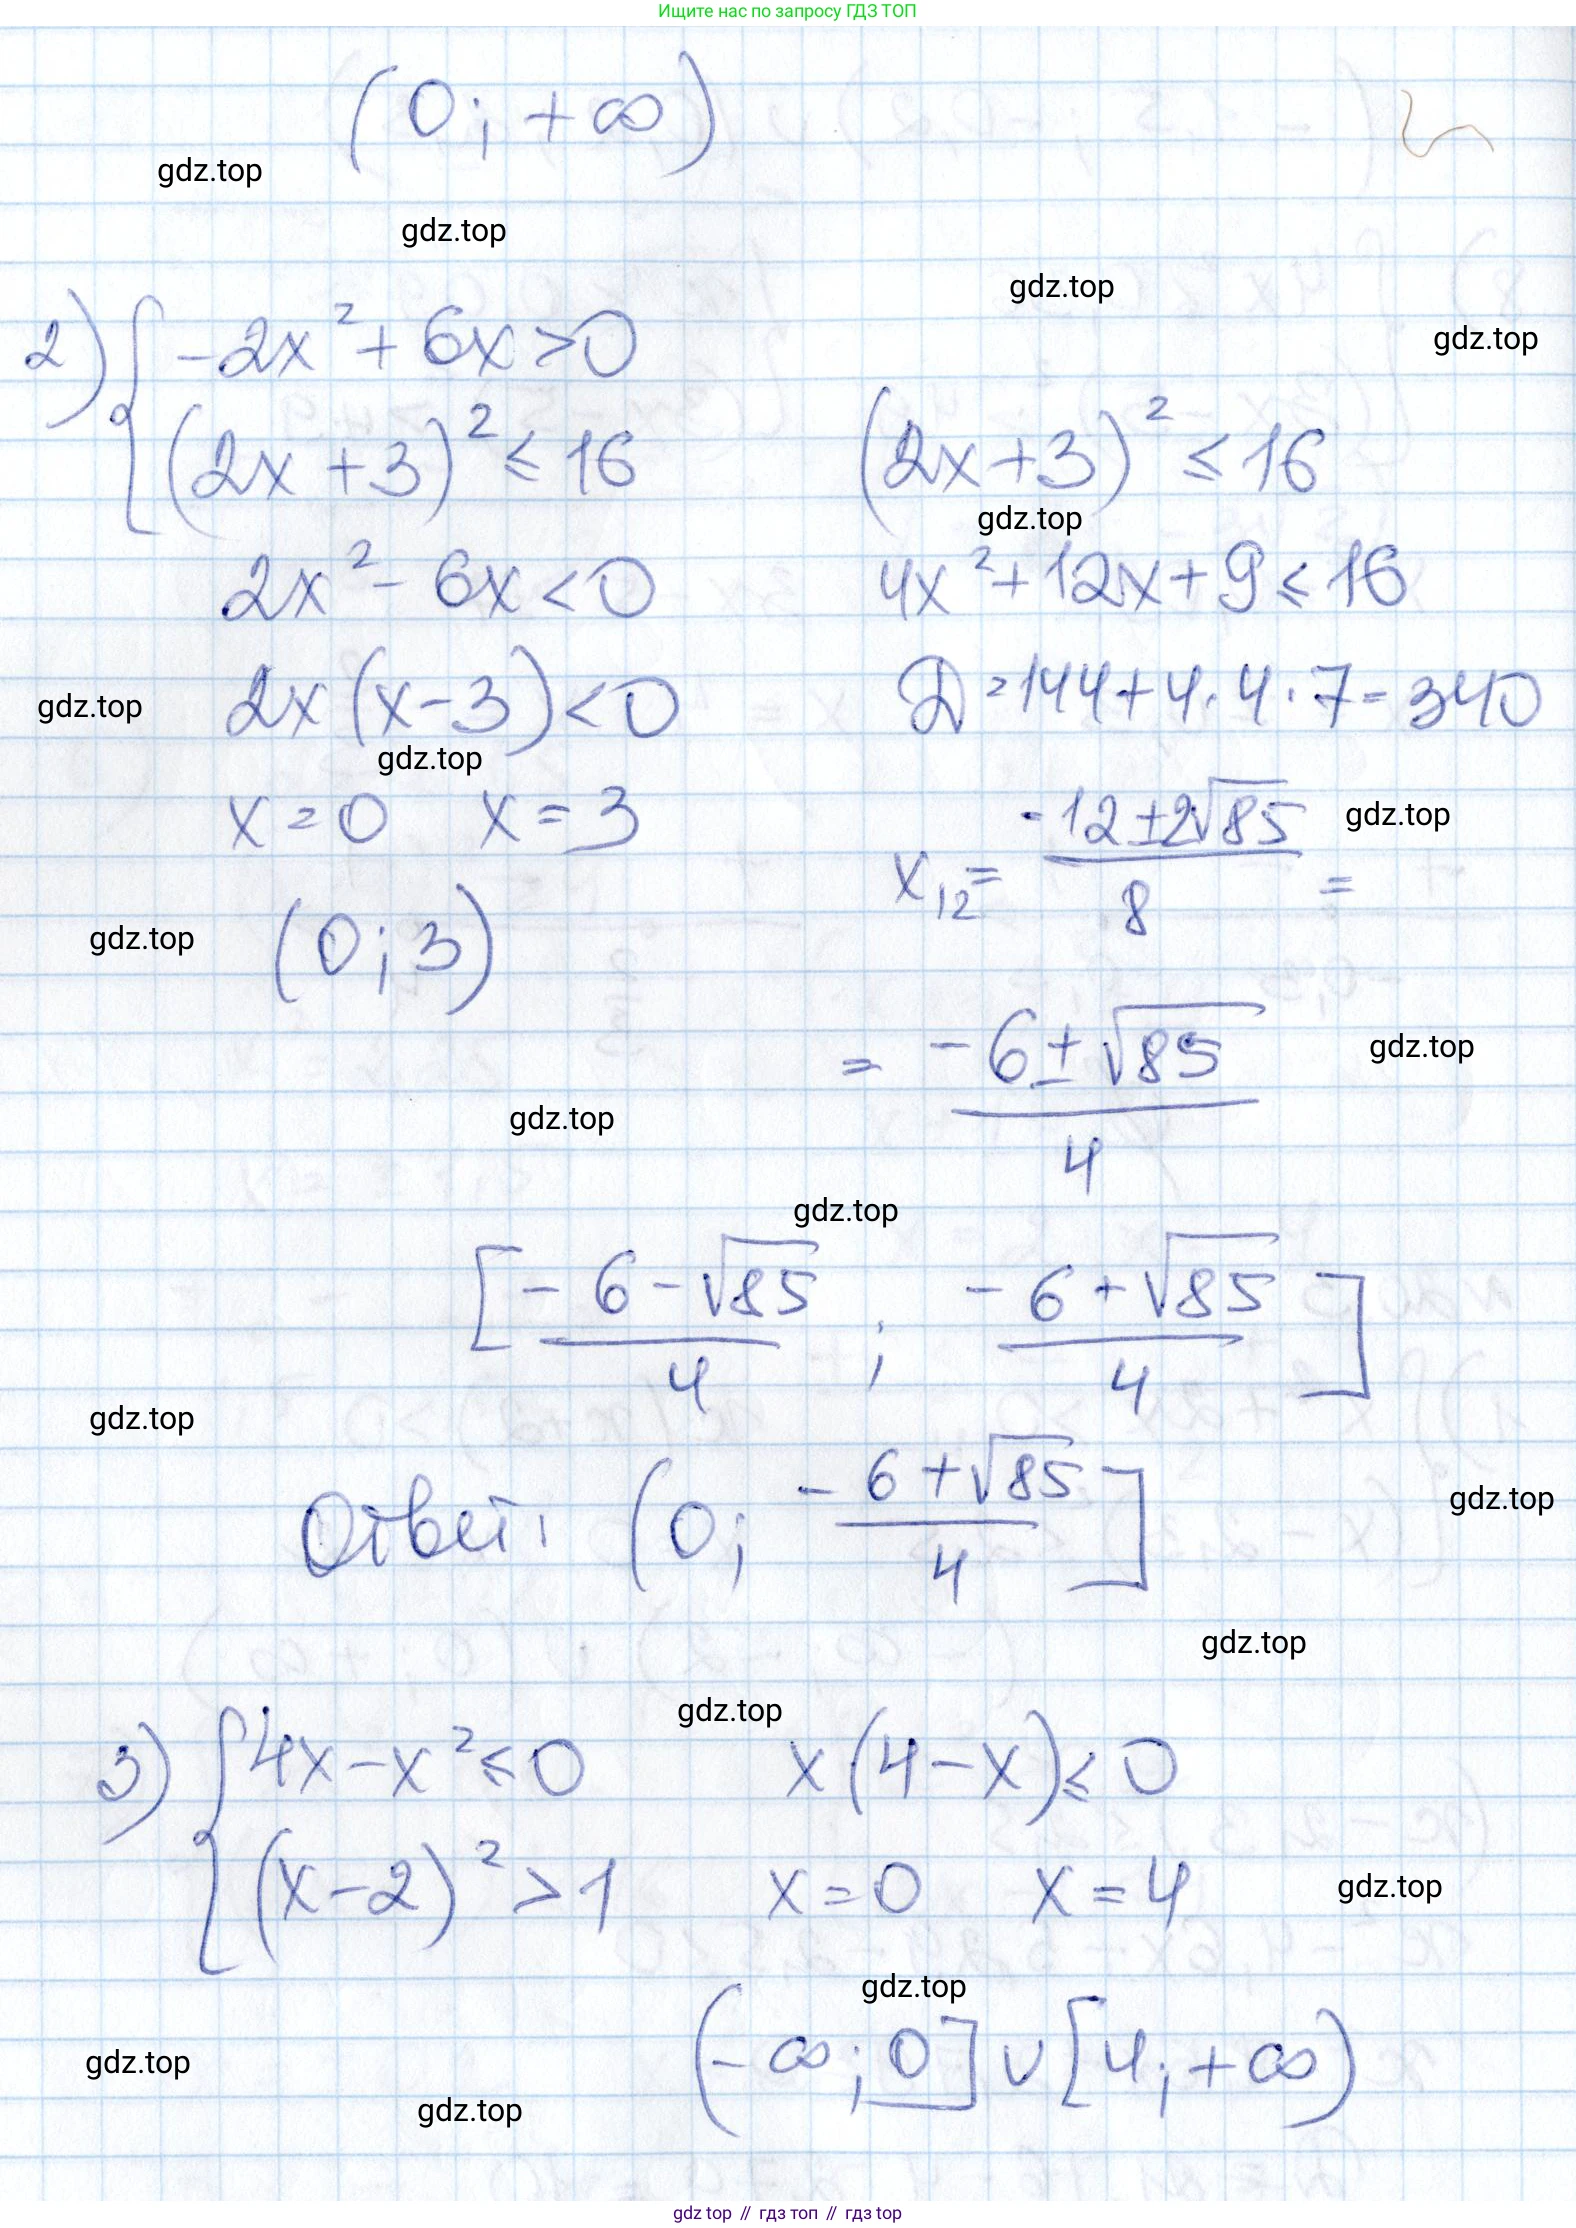 Ищите нас по запросу ГДЗ ТОП
(0; +∞)
gdz.top
gdz.top
gdz.top
gdz.top
2) { -2x² + 6x > 0
(2x + 3)² ≤ 16
(2x + 3)² ≤ 16
gdz.top
2x² - 6x < 0
4x² + 12x + 9 ≤ 16
2x (x - 3) < 0
D = 144 + 4 · 4 · 7 = 340
gdz.top
gdz.top
x = 0 x = 3
x₁₂ = (-12 ± 2√85)/8 =
gdz.top
gdz.top
(0; 3)
= (-6 ± √85)/4
gdz.top
gdz.top
gdz.top
[(-6 - √85)/4 ; (-6 + √85)/4]
gdz.top
Ответ: (0; (-6 + √85)/4]
gdz.top
gdz.top
gdz.top
3) { 4x - x² ≤ 0 x(4 - x) ≤ 0
(x - 2)² > 1 x = 0 x = 4
gdz.top
gdz.top
(-∞; 0] ∪ [4; +∞)
gdz.top
gdz.top
gdz top // гдз топ // гдз top